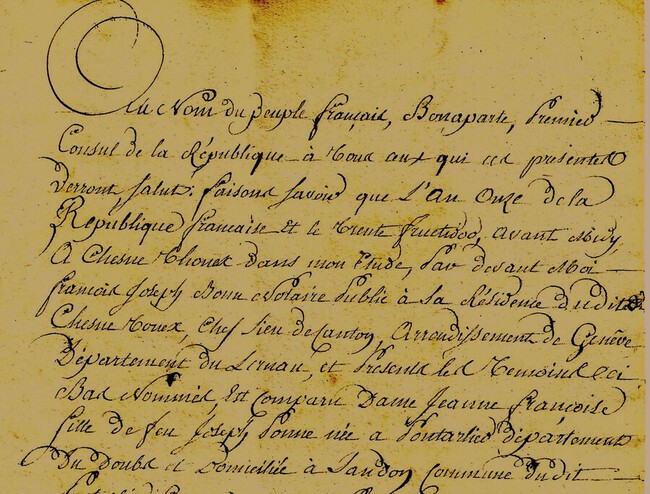 Au Nom du peuple français, Bonaparte, Premier
Consul de la République à Tous ceux qui ces présentes
Verront, Salut. faisons Savoir que L'An Onze de la
République francaise et le Trente fructidor, avant Midy,
A Chesne Thonex dans mon Etude, Par devant Moi
françois Joseph Notaire Public à la Résidence dudit
Chesne Tonex, Chef Lieu de Canton, Arrondissement de Genêve
Département du Leman, et Présents les Temoins ci
Bas Nommés, Est Comparu Dame Jeanne françoise
fille de feu Joseph née a Pontarlier département
Du Doubs et Domiciliée à Commune Dudit